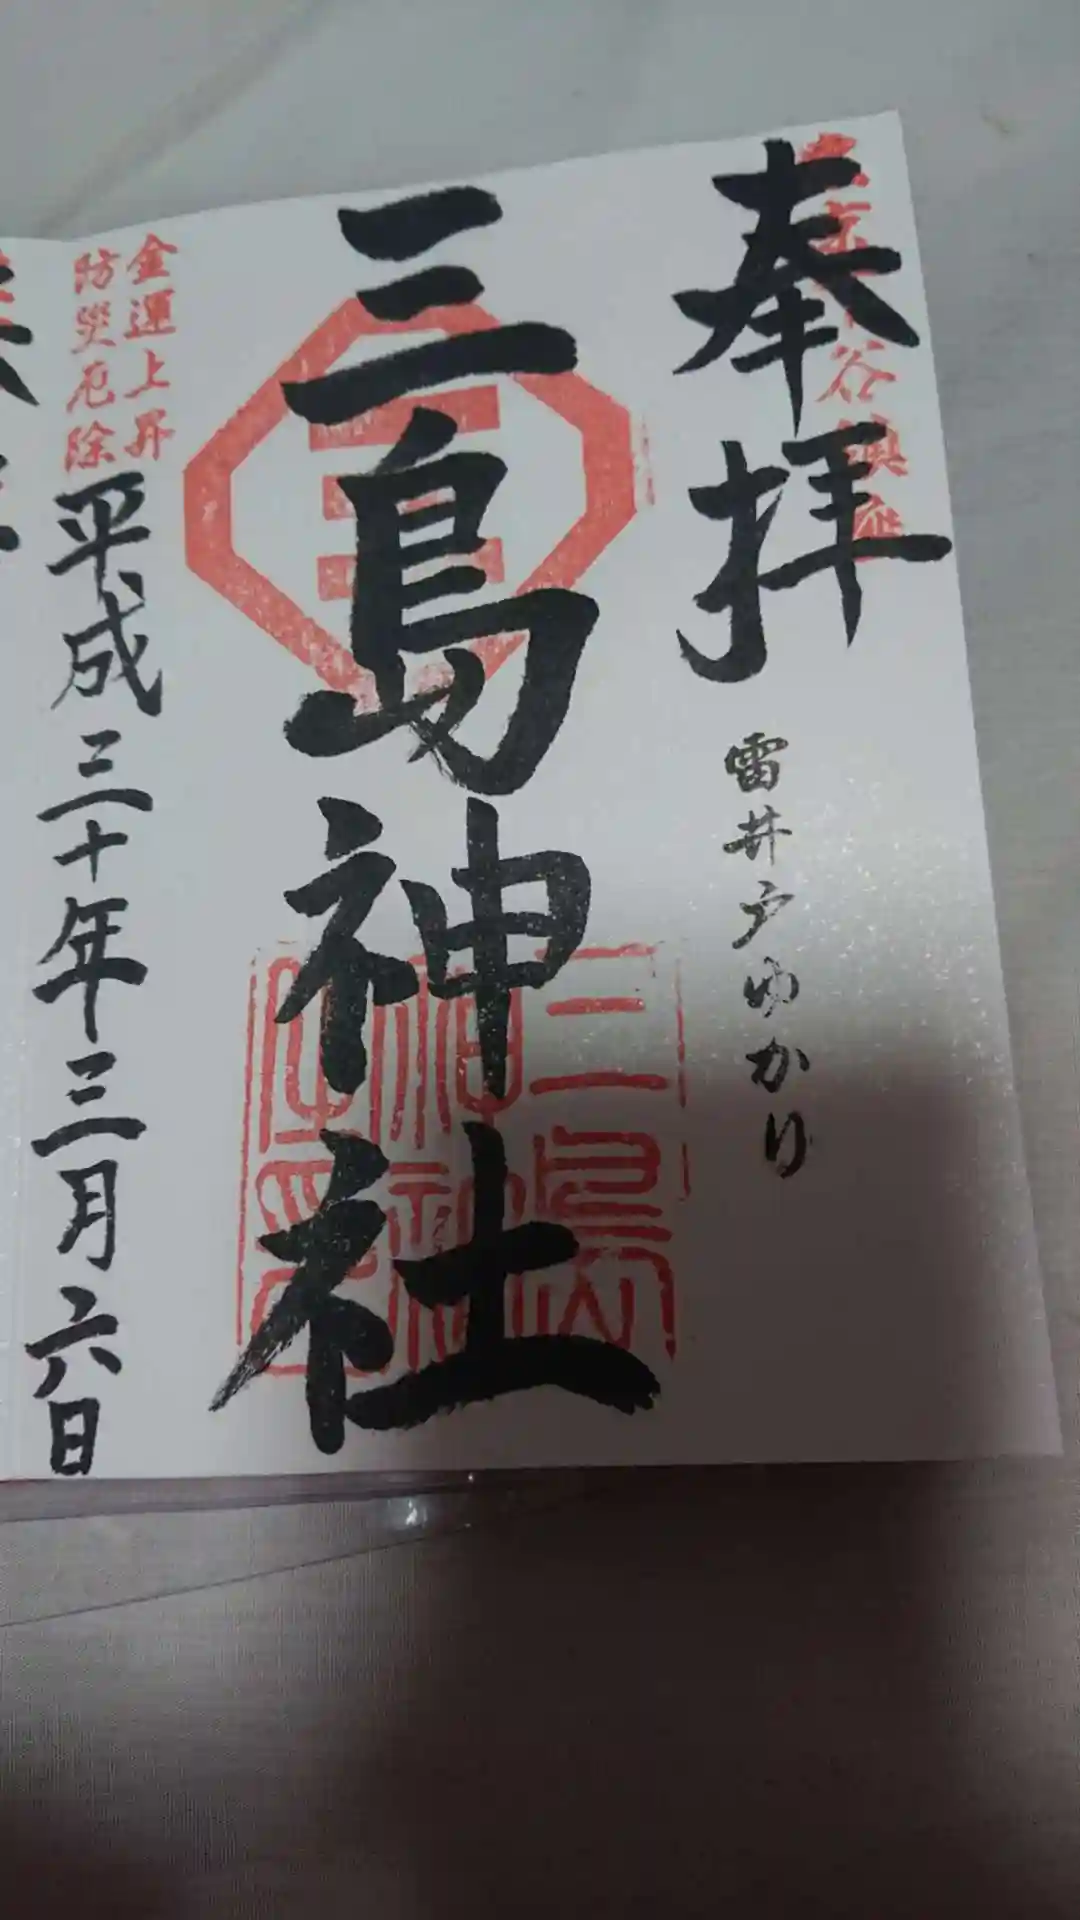 奉拝
雷井戸ゆかり
三島神社
三島神社
金運上昇
防災厄除
平成三十年三月六日